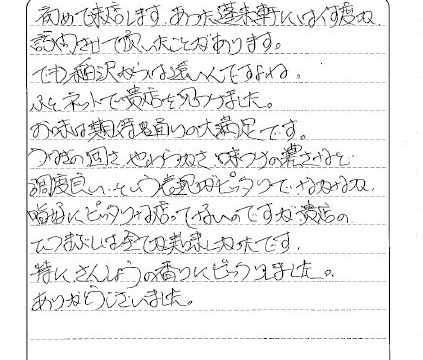 初めて来店します。あつた蓬来軒には何度か
訪問させて頂いたことがあります。
でも稲沢からは遠いんですよね。
ふとネットで貴店を見つけました。
お味は期待通りの大満足です。
うなぎの固さ、やわらかさ、味つけの濃さなど
調度良い、という表現がピッタリで、なかなか、
嗜好にピッタリな店ってないのですが貴店の
ひつまぶしは全てが美味しかったです。
特にさんしょうの香りにビックリしました。
ありがとうございました。